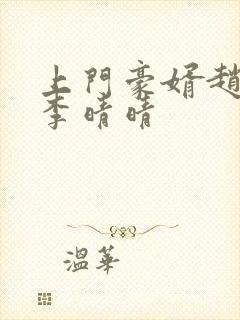 上門豪婿趙
李晴晴
溫華